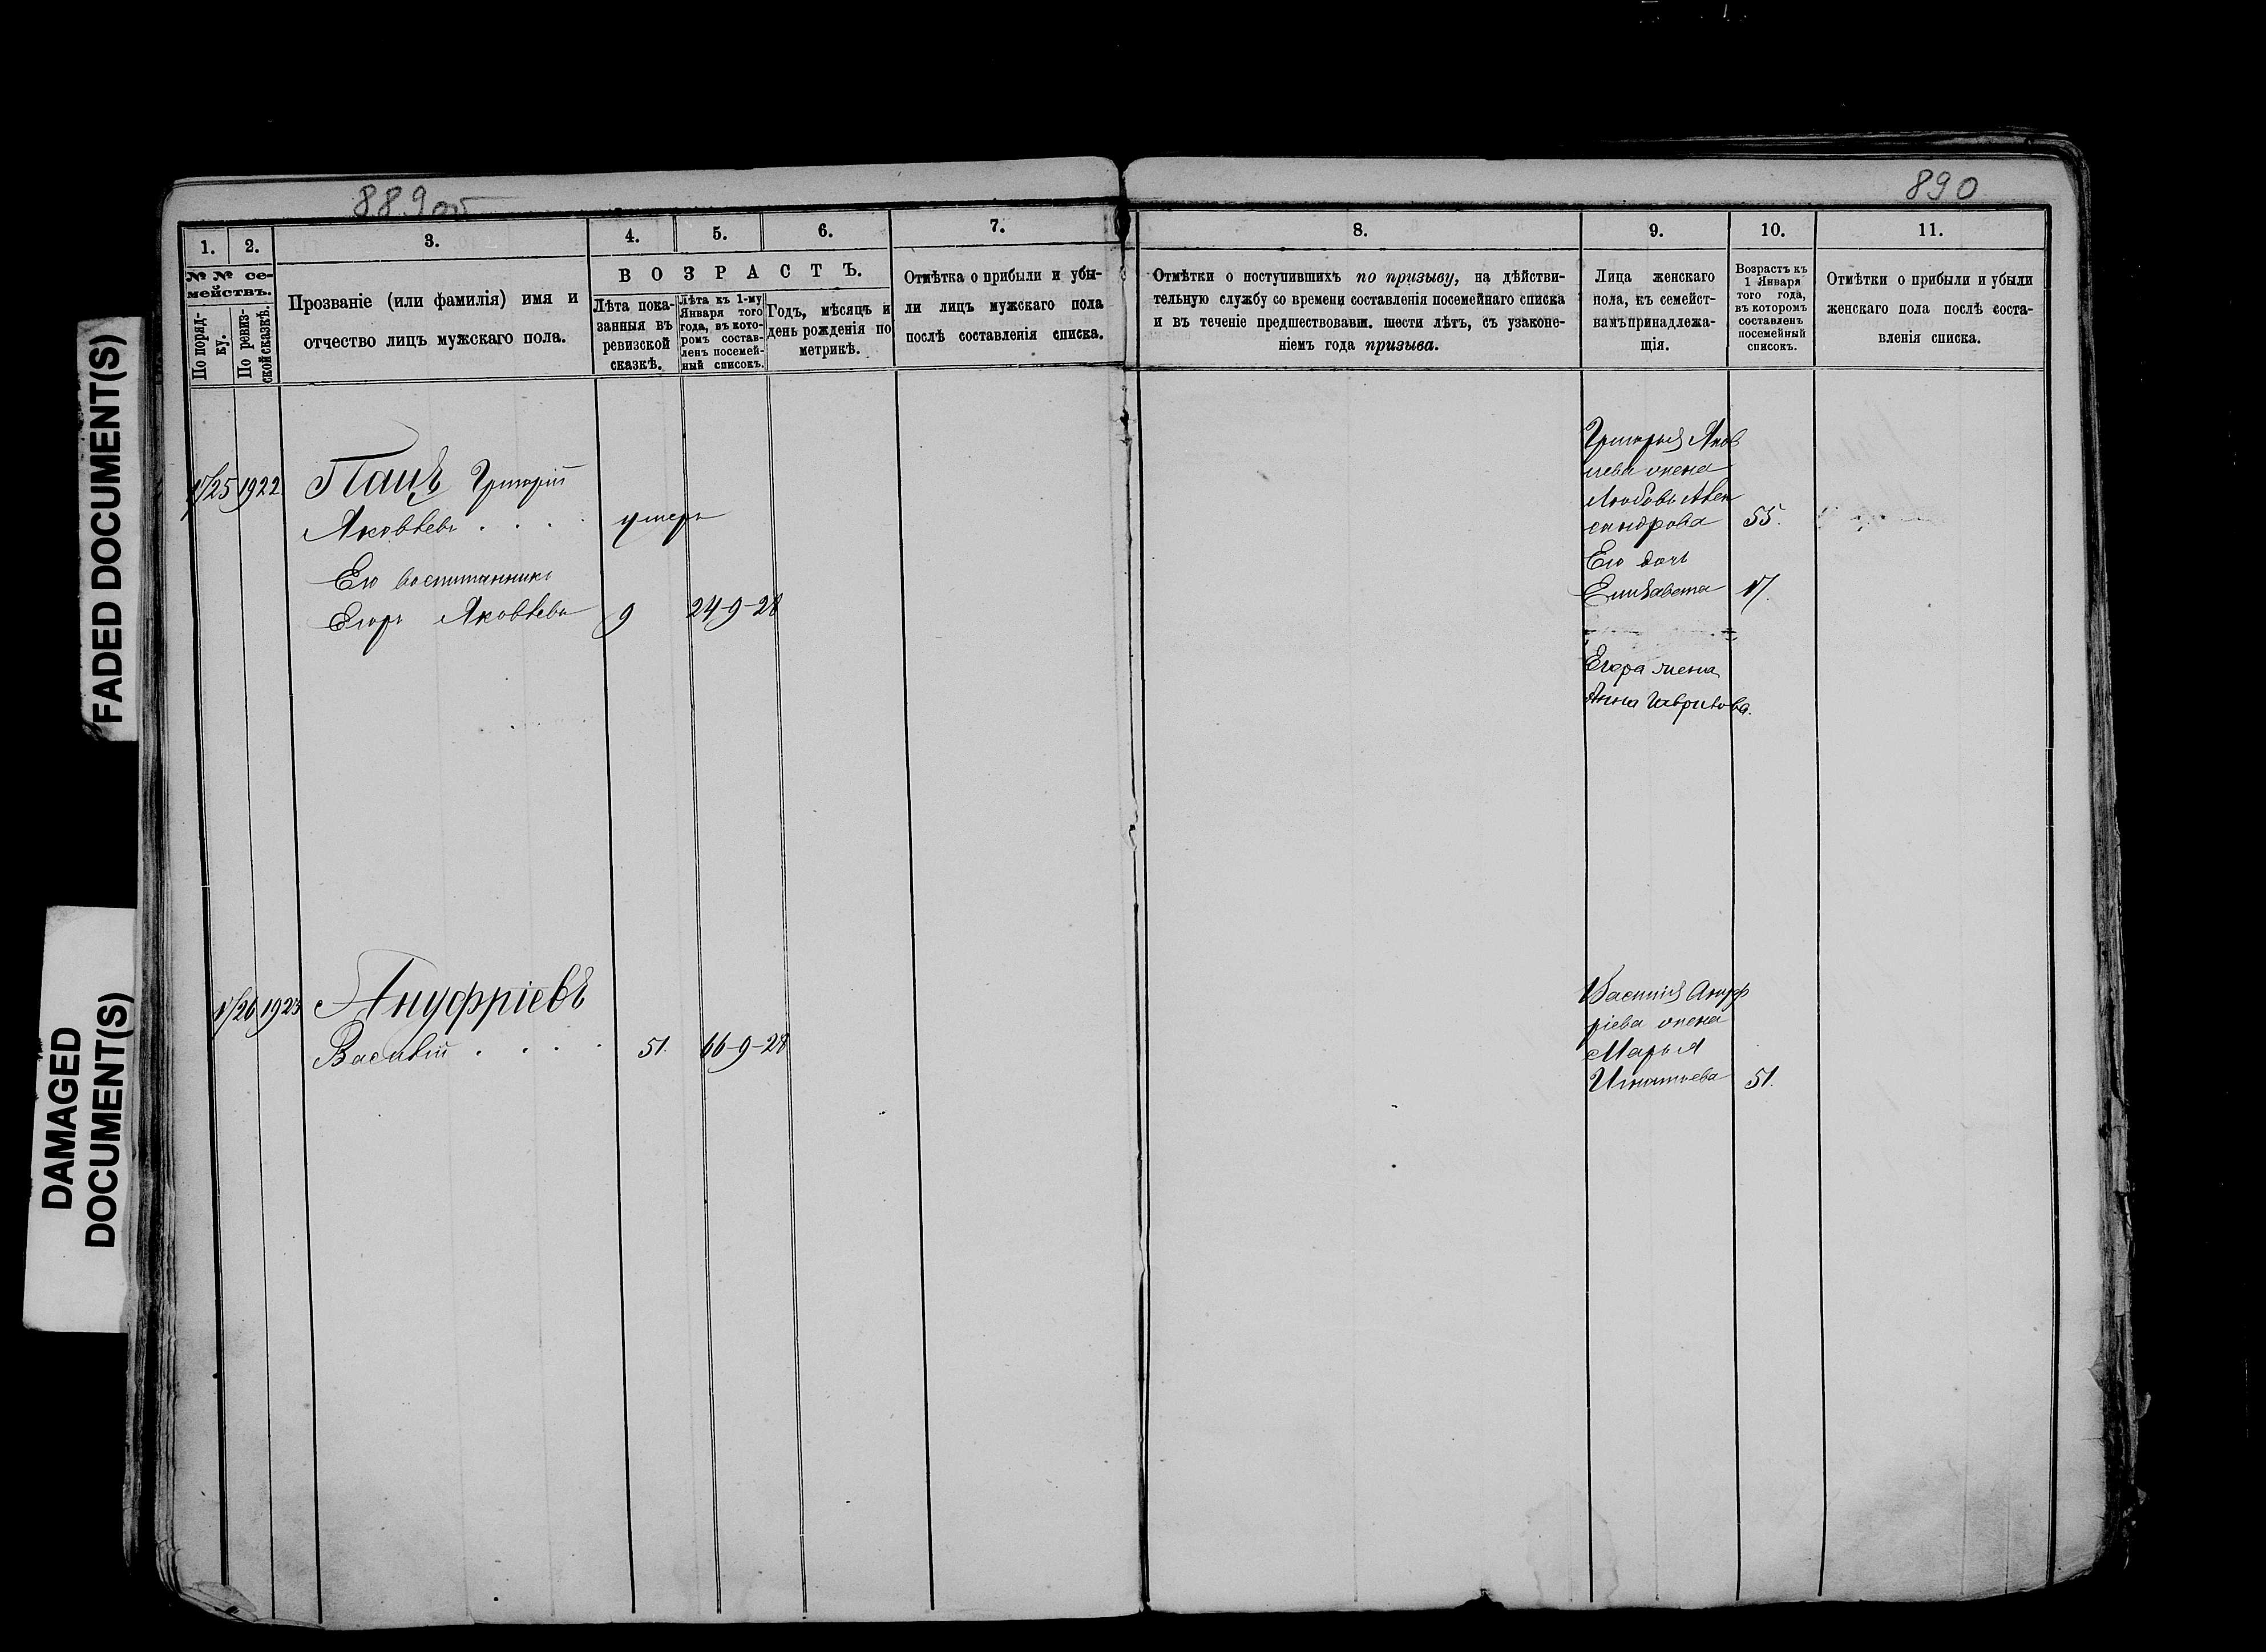 889 об
890
FADED DOCUMENT(S)
DAMAGED
DOCUMENT(S)
1.
2.
3.
4.
5.
6.
7.
№ № се-
мействъ.
По поряд-
ку.
По ревиз-
ской сказкѣ.
Прозваніе (или фамилія) имя и
отчество лицъ мужскаго пола.
ВОЗРАСТЪ.
Лѣта пока-
занныя въ
ревизской
сказкѣ.
Лѣта къ 1-му
Января того
года, въ кото-
ромъ состав-
ленъ посемей-
ный списокъ.
Годъ, мѣсяцъ и
день рожденія по
метрикѣ.
Отмѣтка о прибыли и убы-
ли лицъ мужскаго пола
послѣ составленія списка.
8.
9.
10.
11.
Отмѣтки о поступившихъ по призыву, на дѣйстви-
тельную службу со времени составленія посемейнаго списка
и въ теченіе предшествовавш. шести лѣтъ, съ узаконе-
ніемъ года призыва.
Лица женскаго
пола, къ семейст-
вамъ принадлежа-
щія.
Возрастъ къ
1 Января
того года,
въ которомъ
составленъ
посемейный
списокъ.
Отмѣтки о прибыли и убыли
женскаго пола послѣ соста-
вленія списка.
1922
Пацъ Григорій
Яковлевъ . . . . умеръ
Его воспитанникъ
Егоръ Яковлевъ 9 24-9-28
Григорья Яков
лева жена
Любовь Алек
сандрова 55.
Его дочь
Елизавета 17.
Егора жена
Анна Гаврилова.
1923 Ануфріевъ
Василій . . . . 51. 66-9-28
Василія Ануф
ріева жена
Марья
Игнатьева 51.